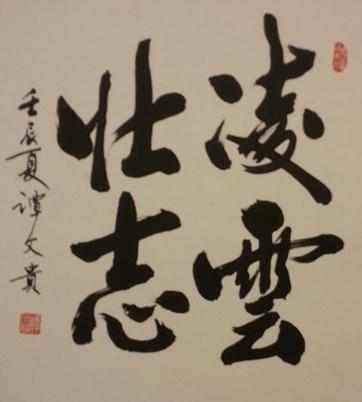 凌雲
壯志
壬辰夏譚文貴